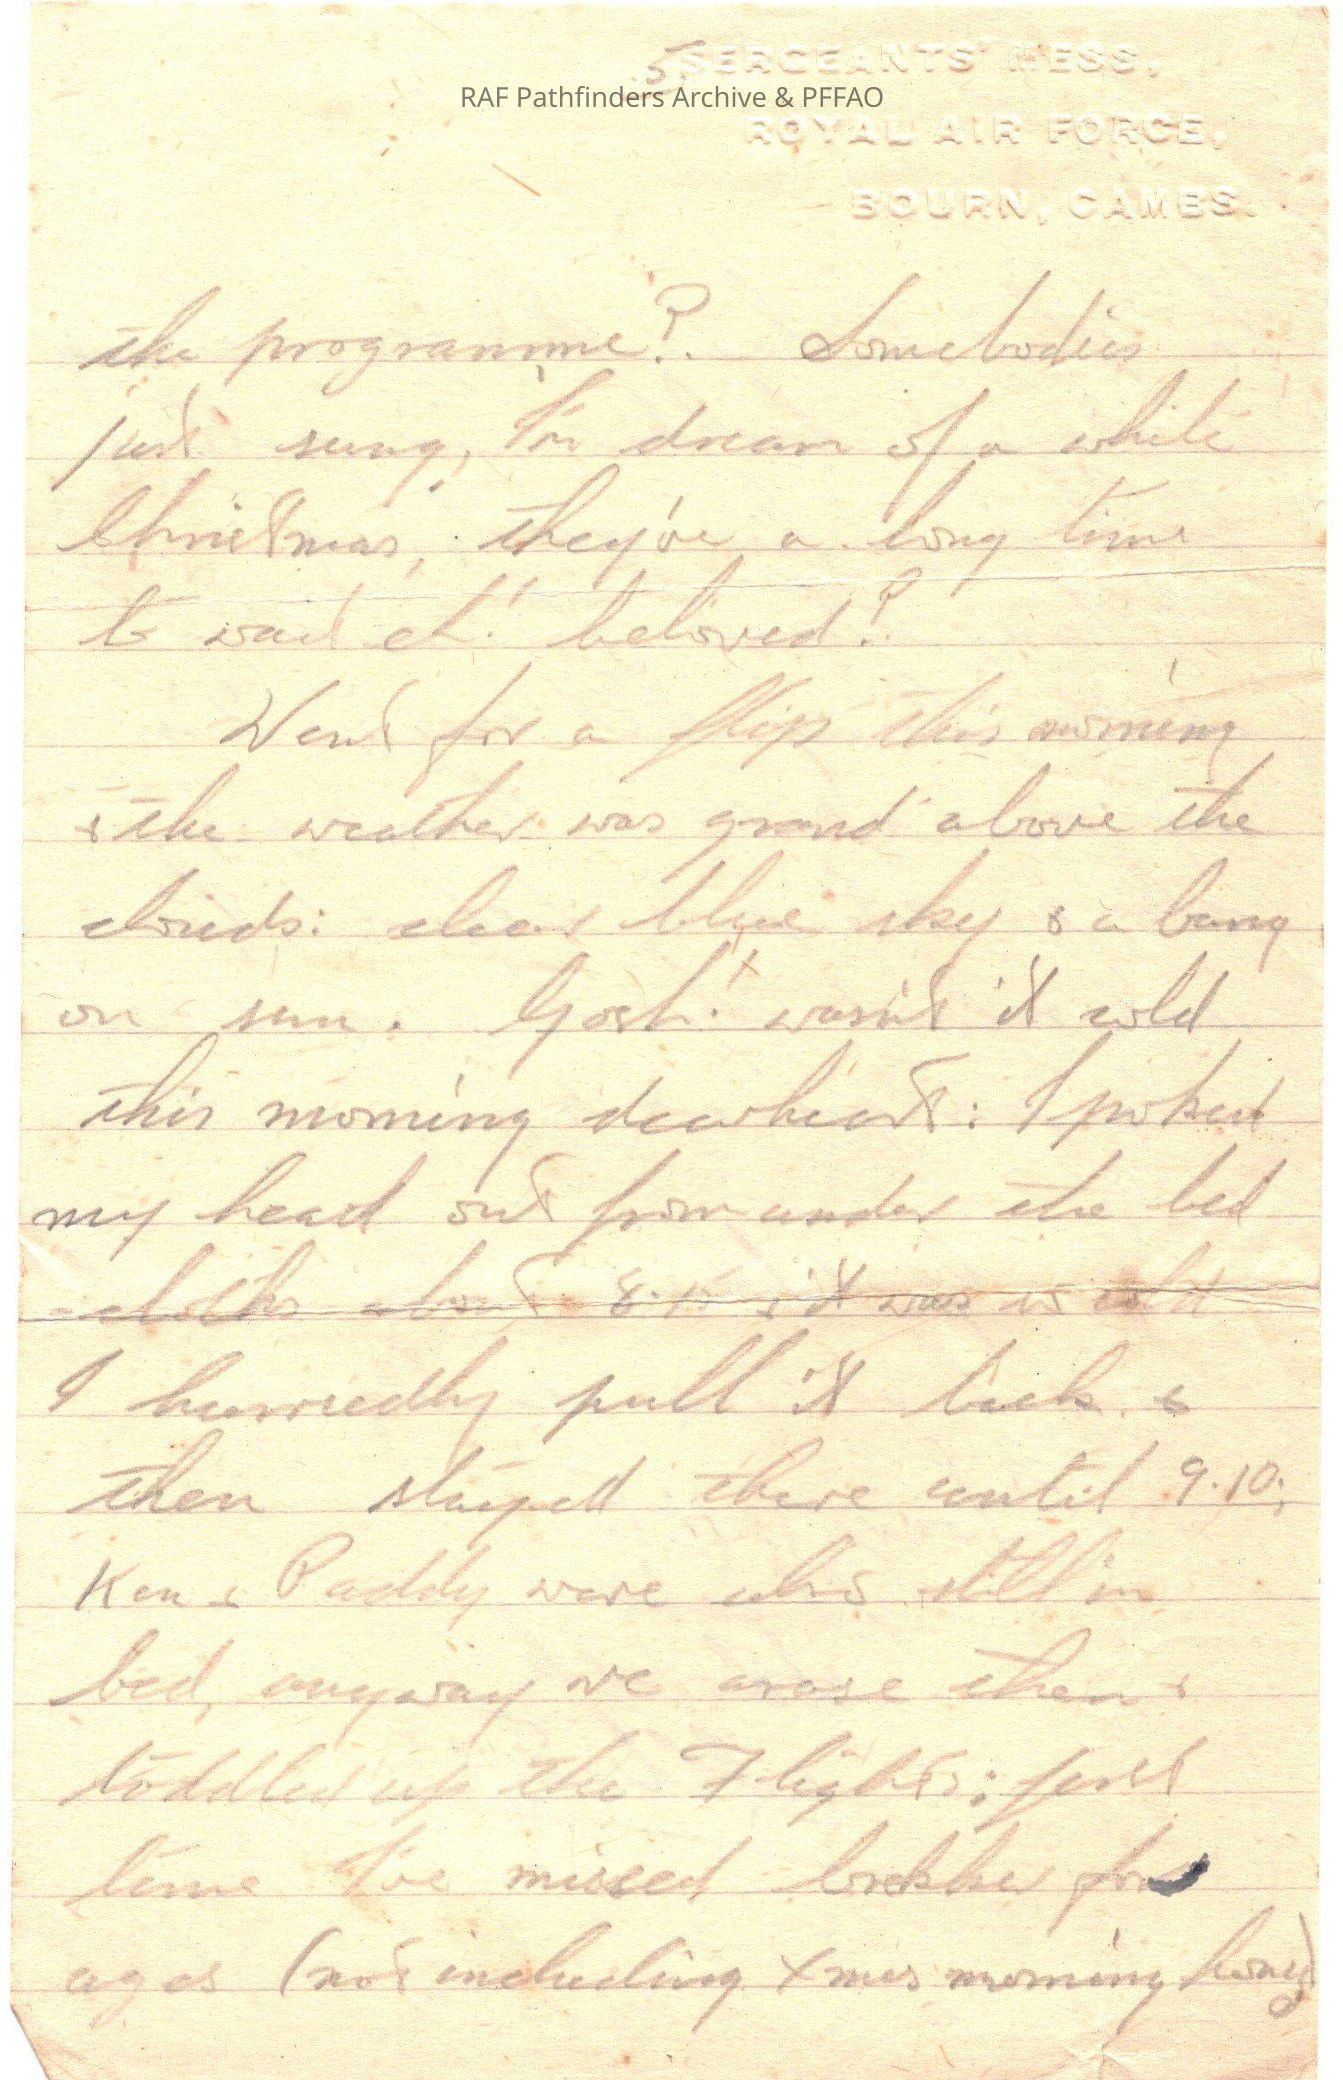 5.
SERGEANTS' MESS,
RAF Pathfinders Archive & PFFAO
ROYAL AIR FORCE,
BOURN, CAMBS.
the programme?. Somebodies
just sung, I'm dream of a white
Christmas, they've a long time
to wait eh! beloved?
Went for a flip this morning
& the weather was grand above the
clouds: clear blue sky & a bang
on sun. Gosh! wasn't it cold
this morning dearheart: I poked
my head out from under the bed
clothes about 8.15 & it was so cold
I hurriedly pull it back &
then stayed there until 9.10;
Ken & Paddy were also still in
bed, anyway we arose then &
toddled up the Flights; first
time I've missed brekker for
ages (not including Xmas morning honey)